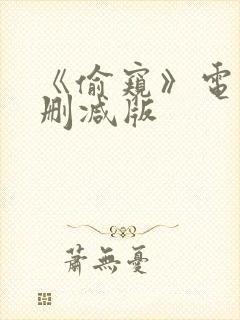 《偷窥》電
删減版
蕭無憂